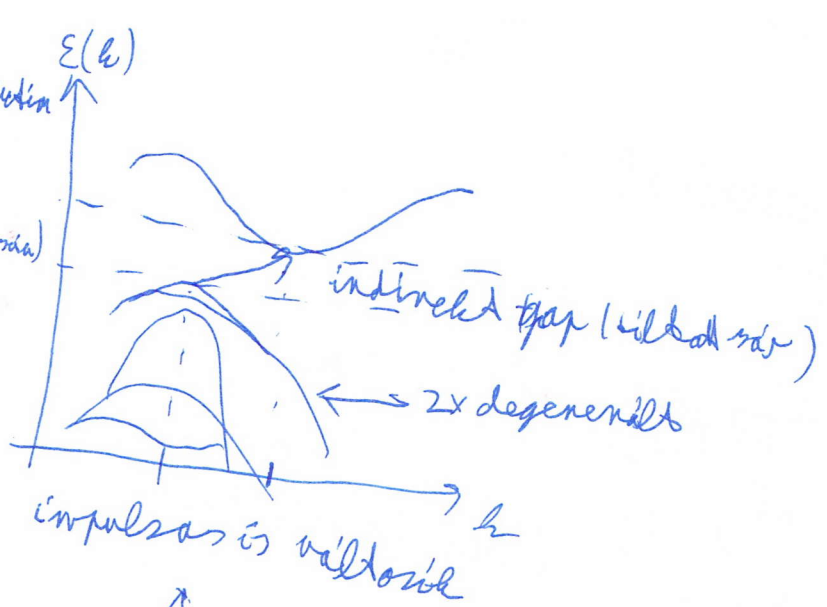 ε(k)
indirekt gap (tiltott sáv)
2x degenerált
k
impulzus is változik